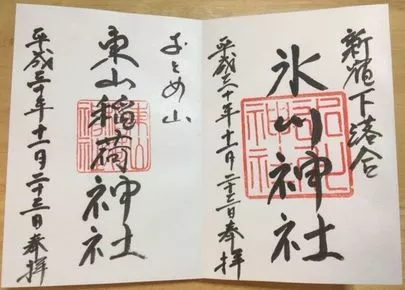 新宿下落合
氷川神社
氷川神社
平成三十年十一月二十三日奉拝
おとめ山
東山稲荷神社
平成三十年十一月二十三日奉拝